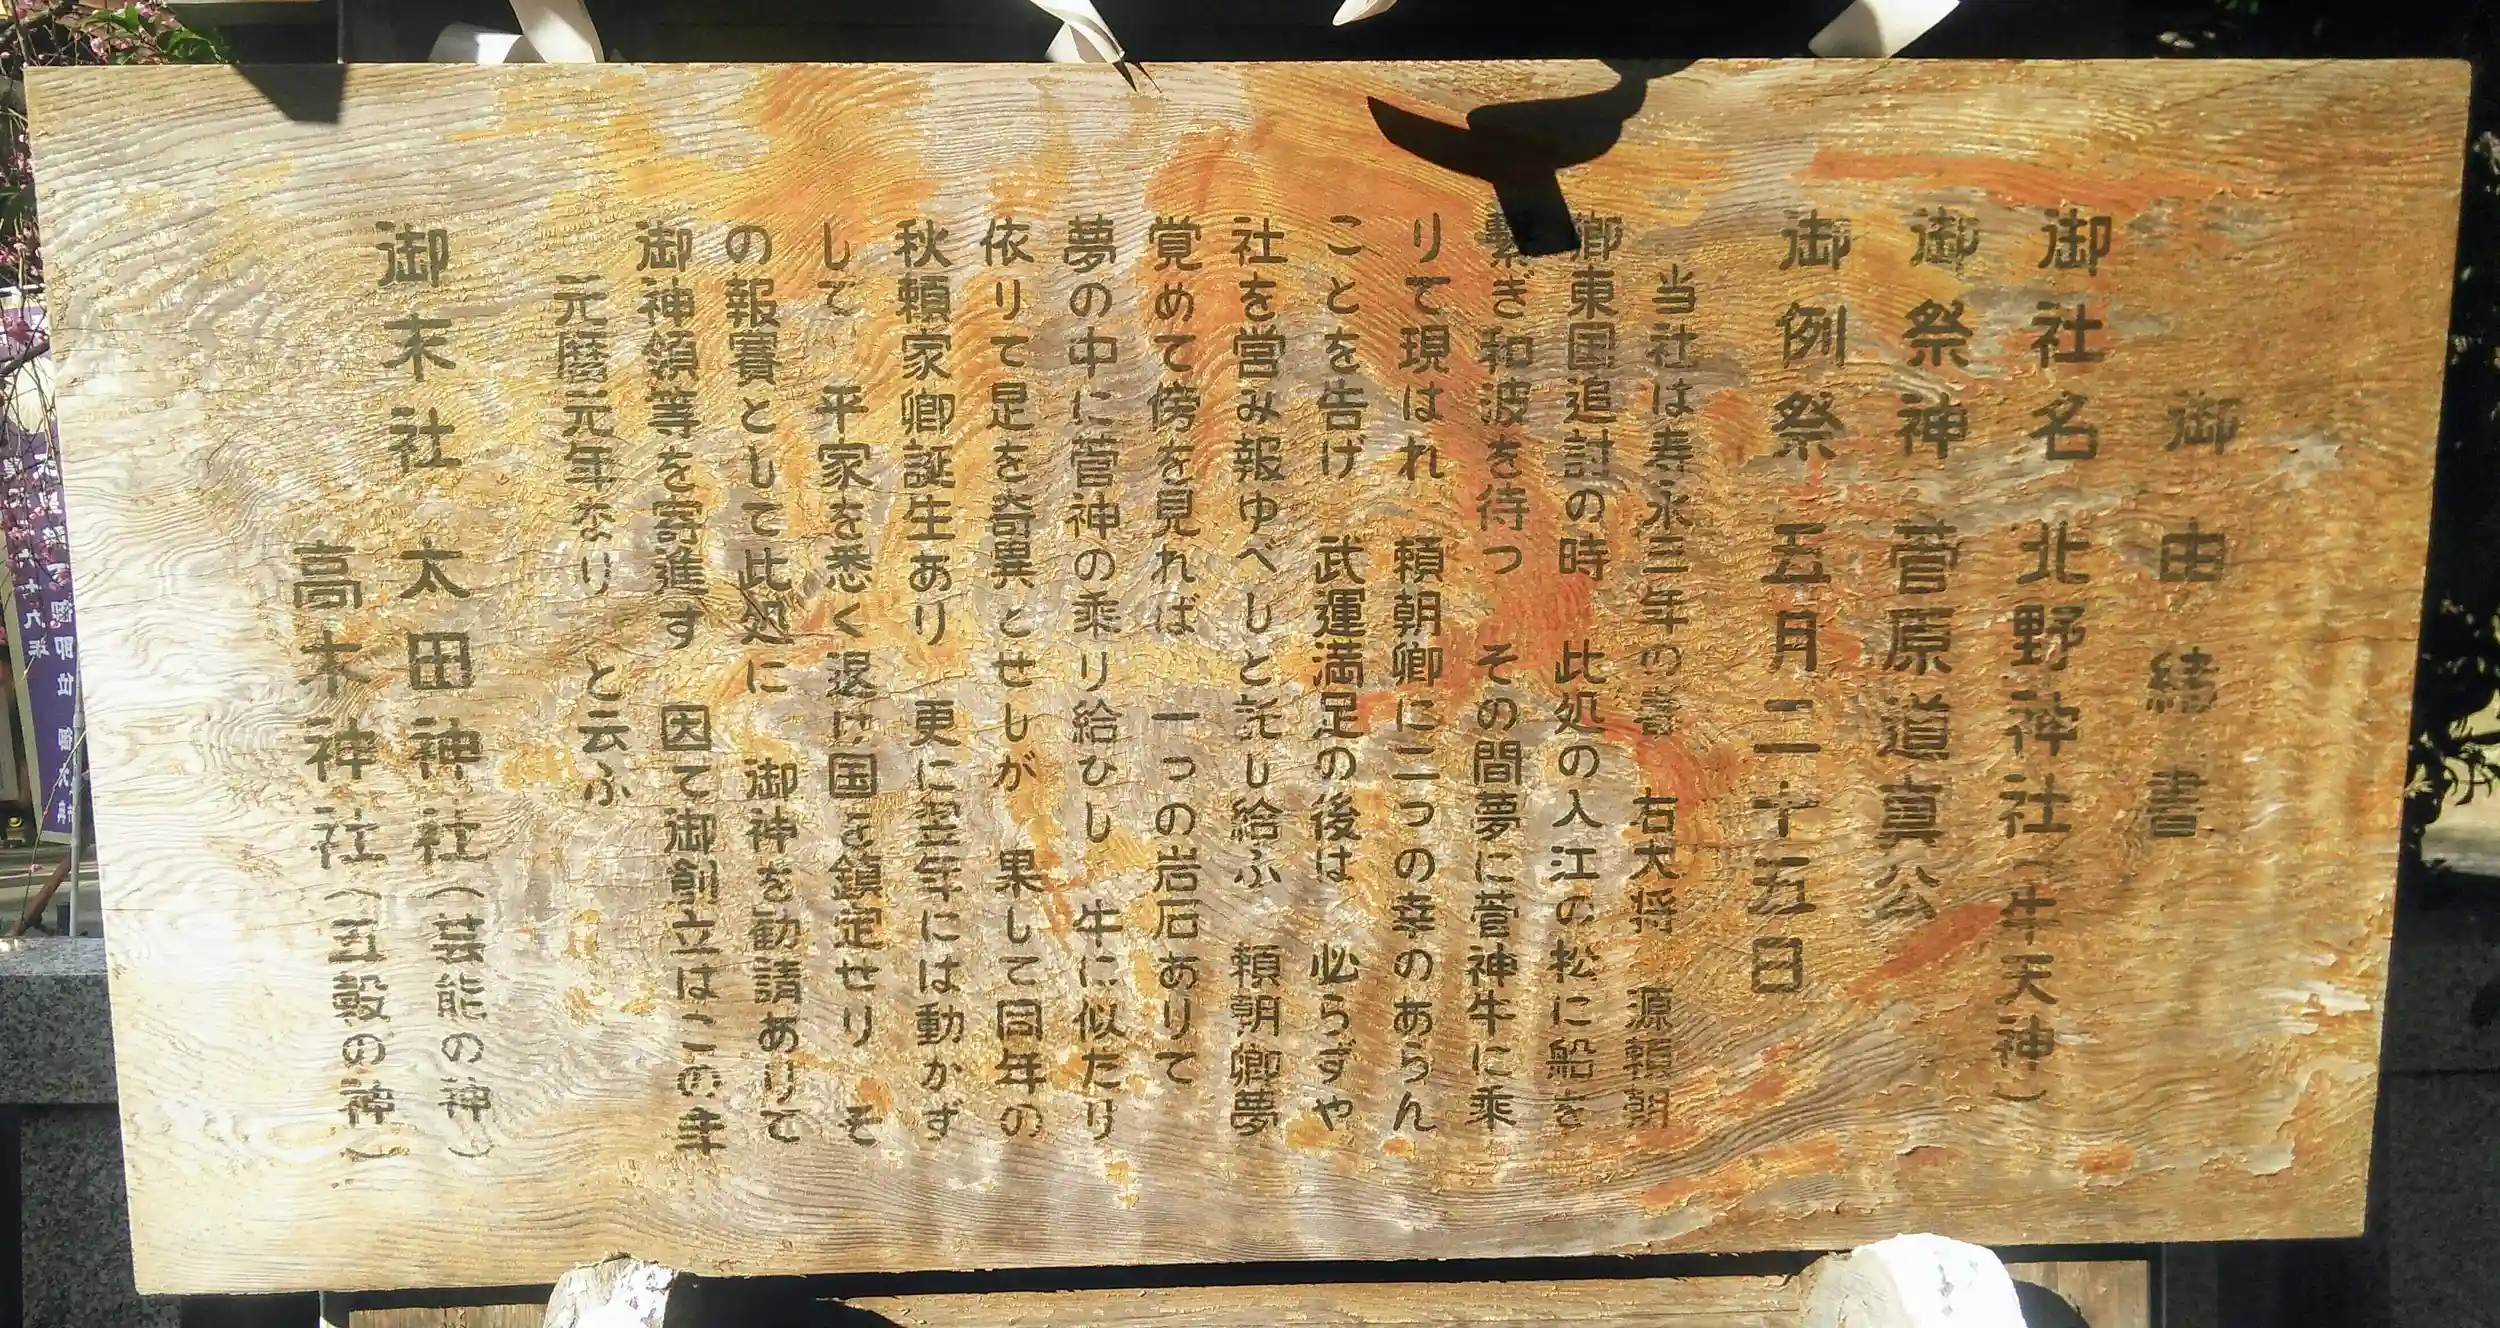 御由緒書
御社名 北野神社（牛天神）
御祭神 菅原道真公
御例祭 五月二十五日
当社は寿永三年の春 右大将 源頼朝
卿東国追討の時 此処の入江の松に船を
繋ぎ和波を待つ その間夢に菅神牛に乗
りて現はれ 頼朝卿に二つの幸のあらん
ことを告げ 武運満足の後は 必らずや
社を営み報ゆべしと託し給ふ 頼朝卿夢
覚めて傍を見れば 一つの岩石ありて
夢の中に菅神の乗り給ひし 牛に似たり
依りて是を奇異とせしが 果して同年の
秋頼家卿誕生あり 更に翌年には動かず
して 平家を悉く退け国を鎮定せり そ
の報賽として此処に 御神を勧請ありて
御神領等を寄進す 因て御創立はこの年
元暦元年なり と云ふ
御末社 太田神社（芸能の神）
高木神社（五穀の神）
御即位 御大典